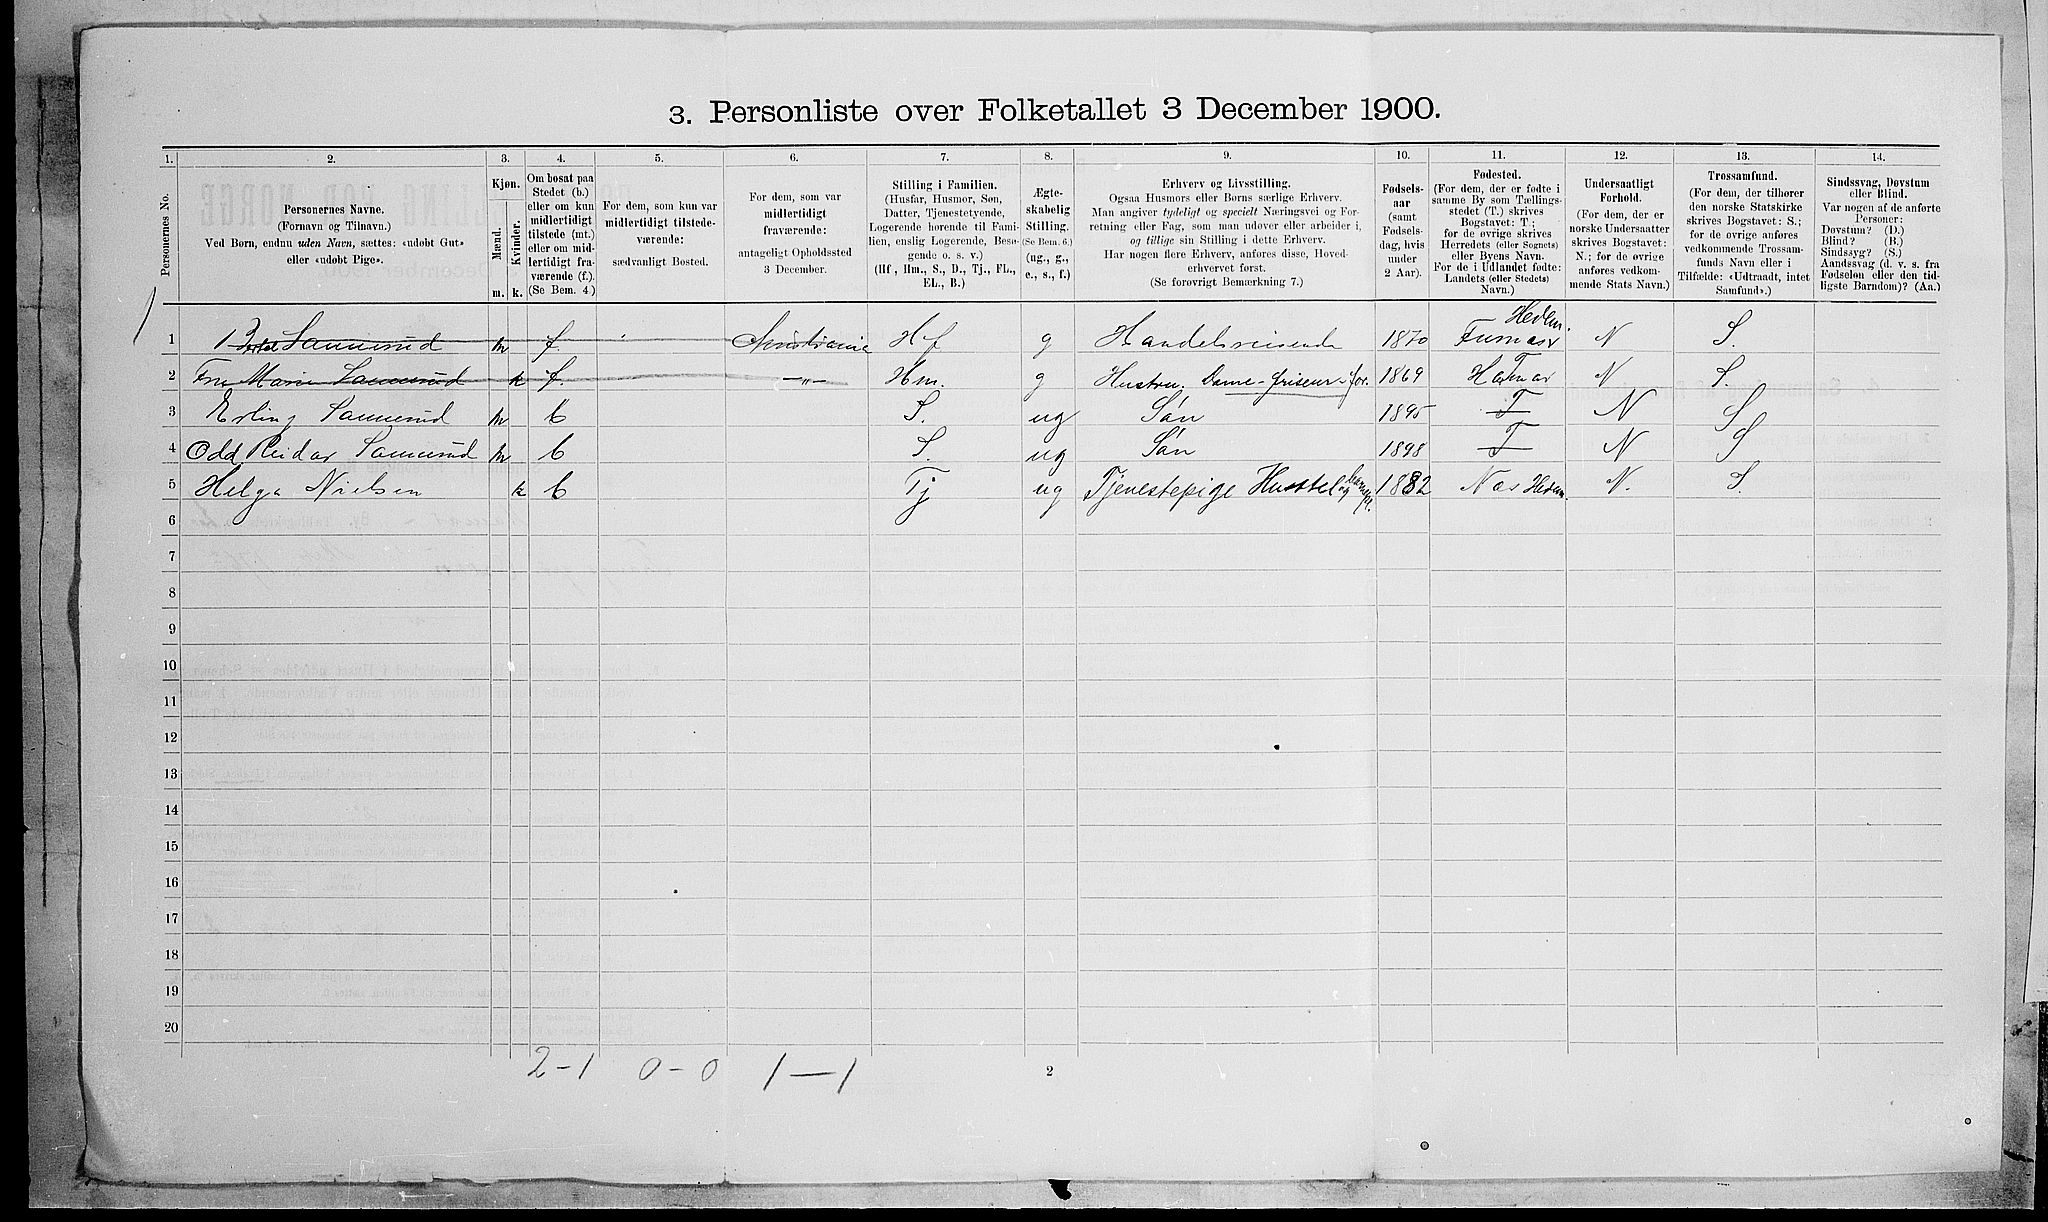 3. Personliste over Folketallet 3 December 1900.
1. 2. 3. 4. 5. 6. 7. 8. 9. 10. 11. 12. 13. 14.
Personernes No.
Personernes Navne.
(Fornavn og Tilnavn.)
Ved Børn, endnu uden Navn, sættes: «udøbt Gut»
eller «udøbt Pige».
Kjøn.
Mænd.
Kvinder.
m. k.
Om bosat paa
Stedet (b.)
eller om kun
midlertidigt
tilstede (mt.)
eller om mid-
lertidigt fra-
værende (f.).
(Se Bem. 4.)
For dem, som kun var
midlertidigt tilstede-
værende:
sædvanligt Bosted.
For dem, som var
midlertidigt
fraværende:
antageligt Opholdssted
3 December.
Stilling i Familien.
(Husfar, Husmor, Søn,
Datter, Tjenestetyende,
Logerende hørende til Fami-
lien, enslig Logerende, Besø-
gende o. s. v.)
(Hf, Hm., S., D., Tj., FL.,
EL., B.)
Ægte-
skabelig
Stilling.
(Se Bem. 6.)
(ug., g.,
e., s., f.)
Erhverv og Livsstilling.
Ogsaa Husmors eller Børns særlige Erhverv.
Man angiver tydeligt og specielt Næringsvei og For-
retning eller Fag, som man udøver eller arbeider i,
og tillige sin Stilling i dette Erhverv.
Har nogen flere Erhverv, anføres disse, Hoved-
erhvervet først.
(Se forøvrigt Bemærkning 7.)
Fødsels-
aar
(samt
Fødsels-
dag, hvis
under
2 Aar).
Fødested.
(For dem, der er fødte i
samme By som Tællings-
stedet (T.) skrives
Bogstavet: T;
for de øvrige skrives
Herredets (eller Sognets)
eller Byens Navn.
For de i Udlandet fødte:
Landets (eller Stedets)
Navn.)
Undersaatligt
Forhold.
(For dem, der er
norske Undersaatter
skrives Bogstavet:
N.; for de øvrige
anføres vedkom-
mende Stats Navn.)
Trossamfund.
(For dem, der tilhører
den norske Statskirke
skrives Bogstavet: S.;
for de øvrige anføres
vedkommende Trossam-
funds Navn eller i
Tilfælde: «Udtraadt, intet
Samfund».)
Sindssvag, Døvstum
eller Blind.
Var nogen af de anførte
Personer:
Døvstum? (D.)
Blind? (B.)
Sindssyg? (S.)
Aandssvag (d. v. s. fra
Fødselen eller den tid-
ligste Barndom)? (Aa.)
1 Sannerud m f. Kristiania Hf g Handelsreisende 1870 Furnes Hedm. N S.
2 Fru Marie Sannerud k f. —"— Hm. g Hustru. Dame-friseur-for. 1869 Hamar T N S.
3 Erling Sannerud m b S. ug Søn 1895 T N S
4 Odd Reidar Sannerud m b S. ug Søn 1898 T N S
5 Helga Nielsen k b Tj ug Tjenestepige Husstel og 1882 Nes Hedm. N. S.
6
7
8
9
10
11
12
13
14
15
16
17
18
19
20
2-1 0-0 1-1
2